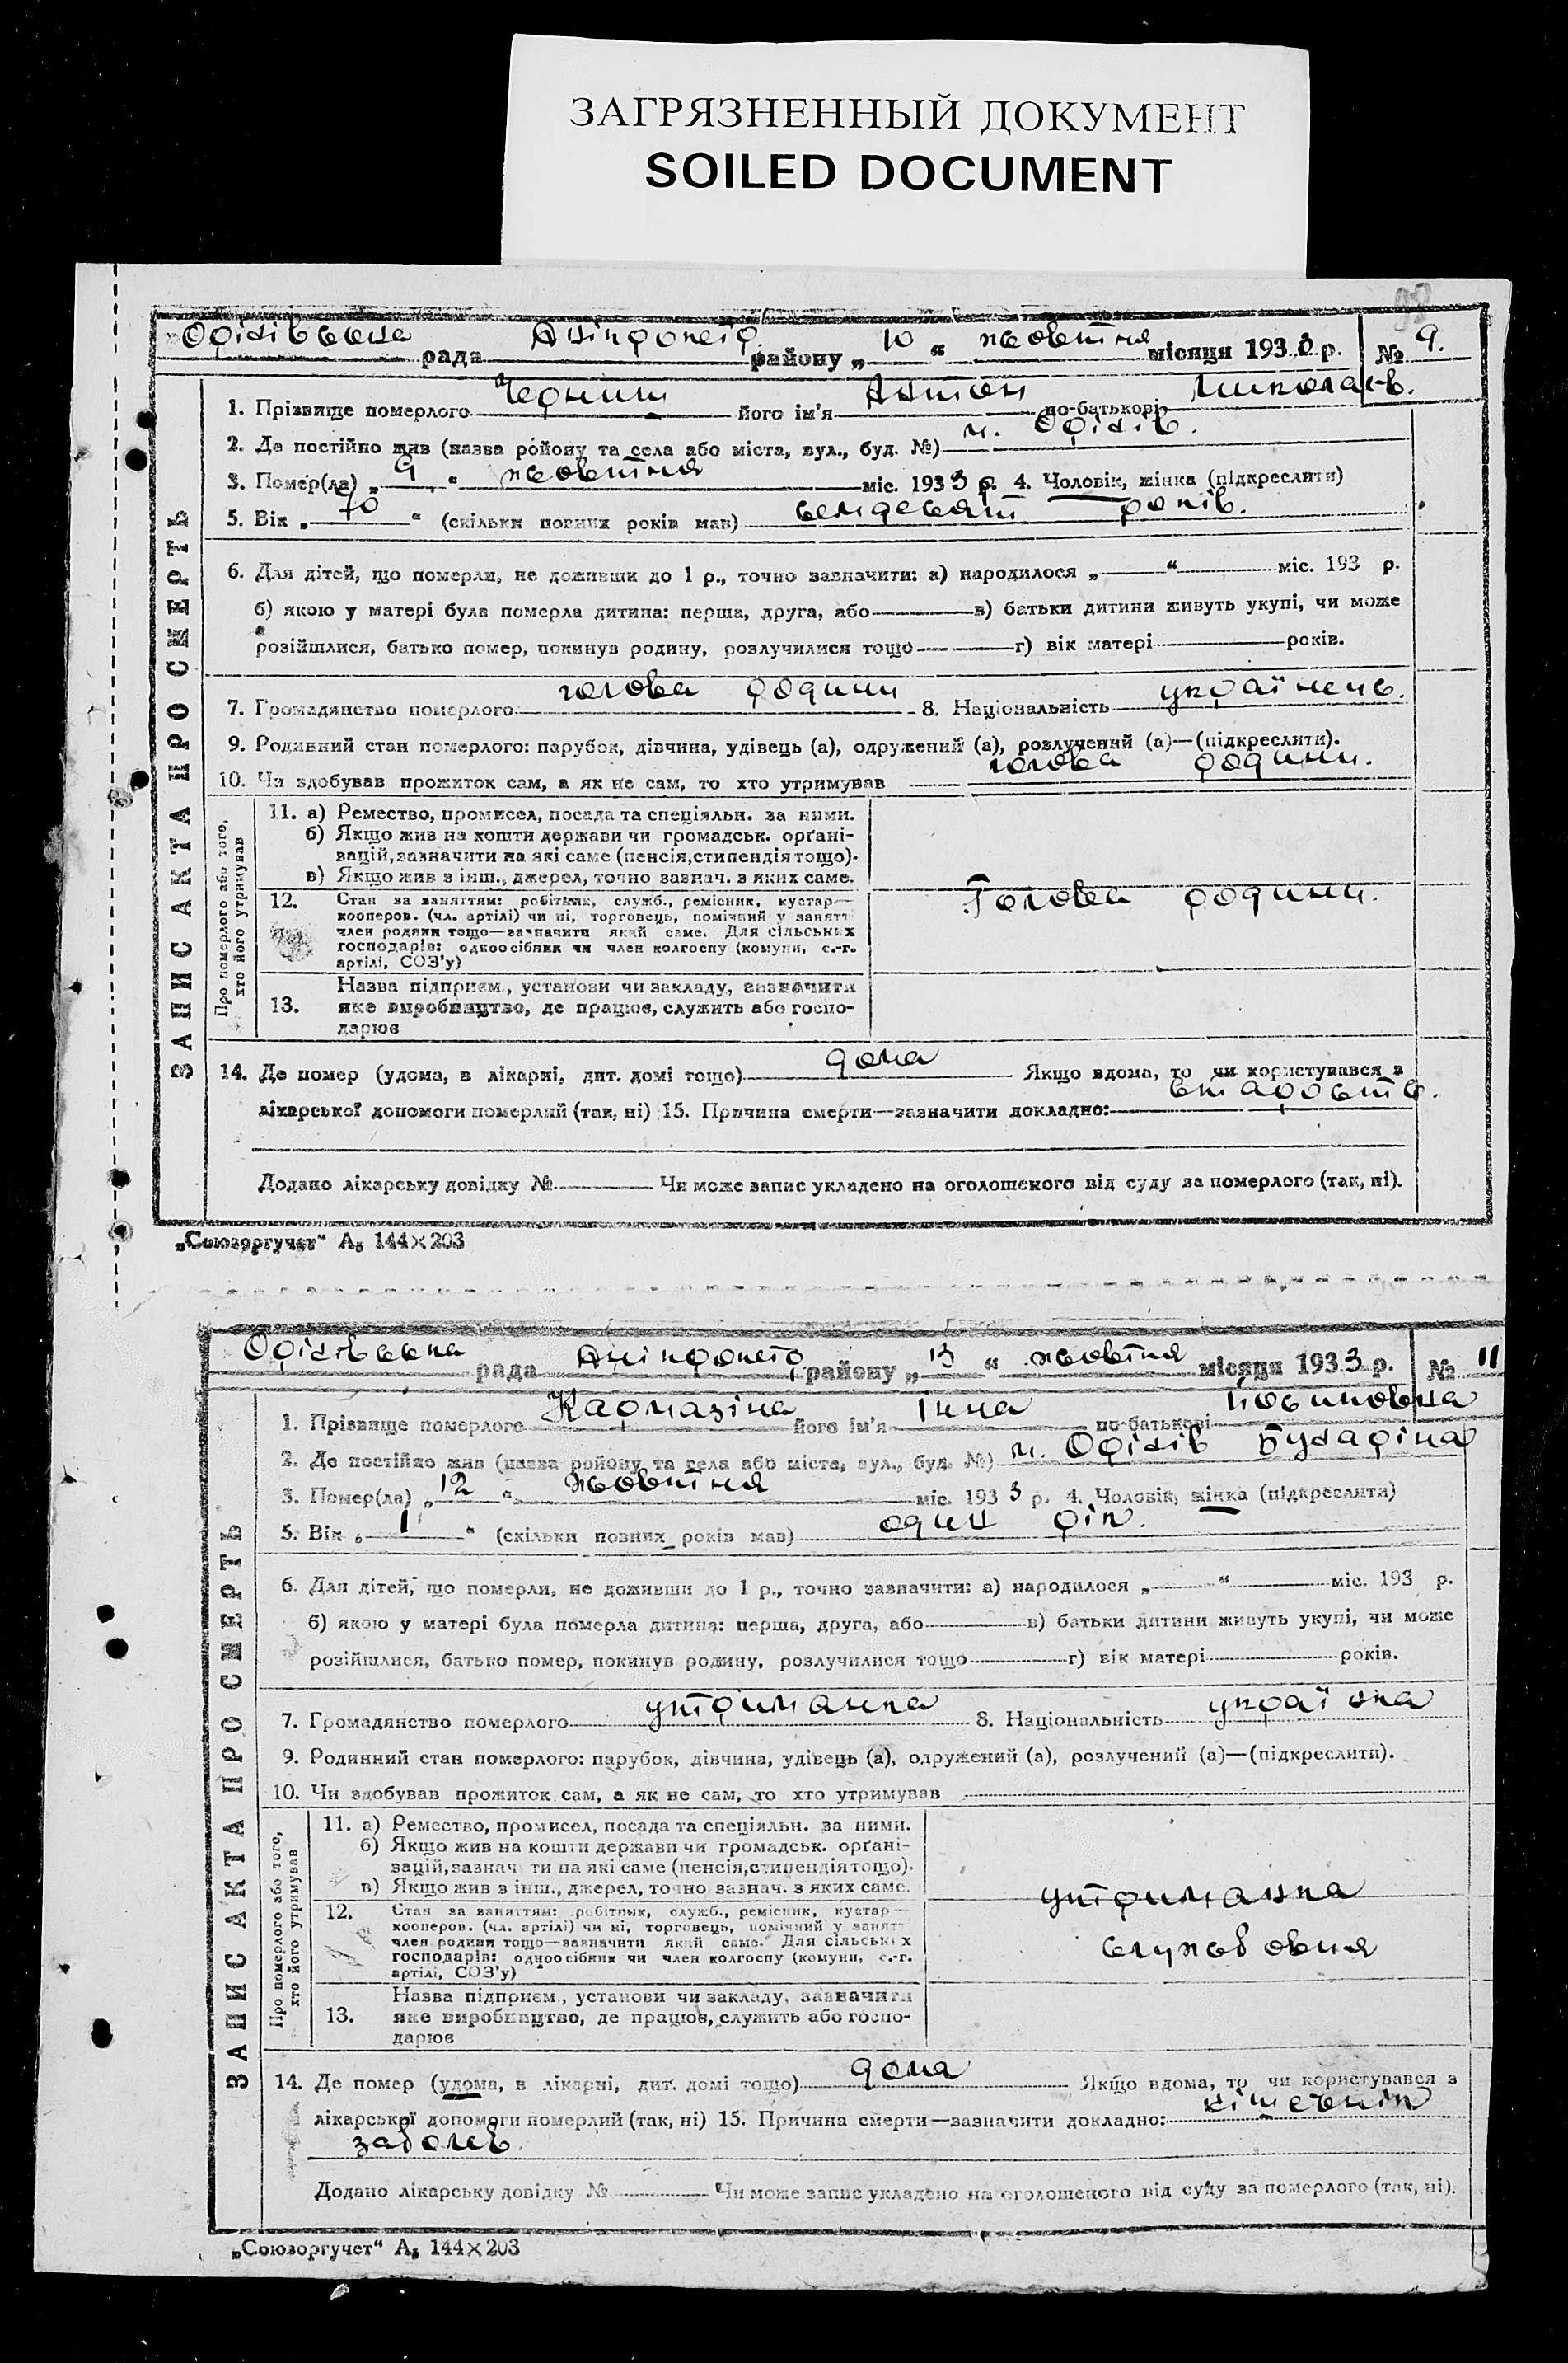 ЗАГРЯЗНЕННЫЙ ДОКУМЕНТ
SOILED DOCUMENT
рада району „ 10 “ жовтня місяця 1933 р. № 9.
1. Прізвище померлого його ім'я Антон по-батькові Миколаєв.
2. Де постійно жив (назва ройону та села або міста, вул., буд. №) м.
3. Помер(ла) „ 9 “ жовтня міс. 1933 р. 4. Чоловік, жінка (підкреслити)
5. Вік „ 70 “ (скільки повних років мав) семдесят років.
6. Для дітей, що померли, не доживши до 1 р., точно зазначити: а) народилося „ “ міс. 193 р.
б) якою у матері була померла дитина: перша, друга, або в) батьки дитини живуть укупі, чи може
розійшлися, батько помер, покинув родину, розлучилися тощо г) вік матері років.
7. Громадянство померлого голова родини 8. Національність українець.
9. Родинний стан померлого: парубок, дівчина, удівець (а), одружений (а), розлучений (а)—(підкреслити).
10. Чи здобував прожиток сам, а як не сам, то хто утримував голова родини.
ЗАПИС АКТА ПРО СМЕРТЬ
Про померлого або того, хто його утримував
11. а) Ремество, промисел, посада та спеціяльн. за ними.
б) Якщо жив на кошти держави чи громадськ. орґані-
зацій, зазначити на які саме (пенсія, стипендія тощо).
в) Якщо жив з інш., джерел, точно зазнач. з яких саме.
12. Стан за заняттям: робітник, служб., ремісник, кустар—
кооперов. (чл. артілі) чи ні, торговець, помічний у занятт
член родини тощо—зазначити який саме. Для сільських
господарів: одноосібник чи член колгоспу (комуни, с.-г.
артілі, СОЗ'у)
Голова родини.
13. Назва підприєм., установи чи закладу, зазначити
яке виробництво, де працює, служить або госпо-
дарює
14. Де помер (удома, в лікарні, дит. домі тощо) дома Якщо вдома, то чи користувався з
лікарської допомоги померлий (так, ні) 15. Причина смерти—зазначити докладно: старость.
Додано лікарську довідку № Чи може запис укладено на оголошеного від суду за померлого (так, ні).
„Союзоргучет“ А₅ 144×203
рада району „ 13 “ жовтня місяця 1933 р. № 11
1. Прізвище померлого Кармазіна його ім'я Інна по-батькові Йосиповна
2. Де постійно жив (назва ройону та села або міста, вул., буд. №) м.
3. Помер(ла) „ 12 “ жовтня міс. 1933 р. 4. Чоловік, жінка (підкреслити)
5. Вік „ 1 “ (скільки повних років мав) один рік.
6. Для дітей, що померли, не доживши до 1 р., точно зазначити: а) народилося „ “ міс. 193 р.
б) якою у матері була померла дитина: перша, друга, або в) батьки дитини живуть укупі, чи може
розійшлися, батько помер, покинув родину, розлучилися тощо г) вік матері років.
7. Громадянство померлого утриманка 8. Національність українка
9. Родинний стан померлого: парубок, дівчина, удівець (а), одружений (а), розлучений (а)—(підкреслити).
10. Чи здобував прожиток сам, а як не сам, то хто утримував
ЗАПИС АКТА ПРО СМЕРТЬ
Про померлого або того, хто його утримував
11. а) Ремество, промисел, посада та спеціяльн. за ними.
б) Якщо жив на кошти держави чи громадськ. орґані-
зацій, зазнач ти на які саме (пенсія, стипендія тощо).
в) Якщо жив з інш., джерел, точно зазнач. з яких саме.
12. Стан за заняттям: робітник, служб., ремісник, кустар—
кооперов. (чл. артілі) чи ні, торговець, помічний у занятт
член родини тощо—зазначити який саме. Для сільських
господарів: одноосібник чи член колгоспу (комуни, с.-г.
артілі, СОЗ'у)
утриманка
службовця
13. Назва підприєм., установи чи закладу, зазначити
яке виробництво, де працює, служить або госпо-
дарює
14. Де помер (удома, в лікарні, дит. домі тощо) дома Якщо вдома, то чи користувався з
лікарської допомоги померлий (так, ні) 15. Причина смерти—зазначити докладно:
заболев.
Додано лікарську довідку № Чи може запис укладено на оголошеного від суду за померлого (так, ні).
„Союзоргучет“ А₅ 144×203